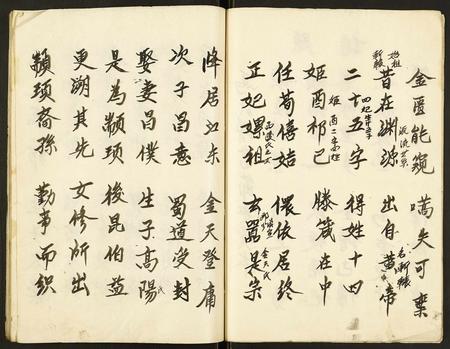 金匱能窺 嚆矢可
始祖軒轅 昔在淵源 出自黄帝 名軒轅
二十五字 得姓十四
姬酉祁己 滕箴在中
任荀僖姞 儇依居終
正妃嫘祖 西陵氏之女 玄囂是宗 金天氏
降居江東 金天登庸
次子昌意 蜀道没封
娶妻昌僕 生子高陽氏
是為顓頊 後昆伯益
更溯其先 女修所出
顓頊裔孫 勤事而織